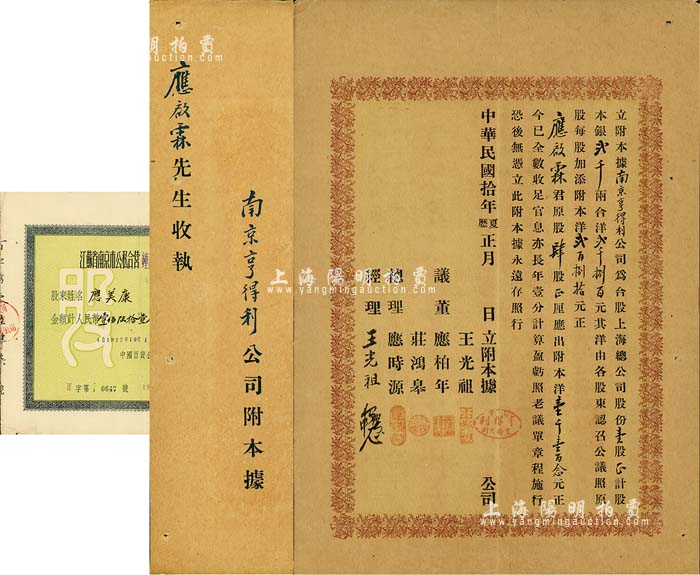 立附本據南京亨得利公司為合股上海總公司股份壹股正計股
本銀貳千兩合洋貳千捌百元其洋由各股東認召公議照原
股每股加添附本洋貳百捌拾元正
應啟霖君原股肆股正厘應出附本洋壹千壹百念元正
今已全數收足官息亦長年壹分計算盈虧照老議單章程施行
恐後無憑立此附本據永遠存照行
中華民國拾年夏歷正月 日立附本據 公司
王光祖
議董 應柏年
莊鴻皋
總理 應時源
經理 王光祖
南京亨得利公司附本據
應啟霖先生收執
江蘇省南京市公私合營
股東姓名 應美康
金額計人民幣
中國百貨公
百字第 0047 號
上海陽明拍賣
www.yangmingauction.com
上海陽明拍賣
www.yangmingauction.com